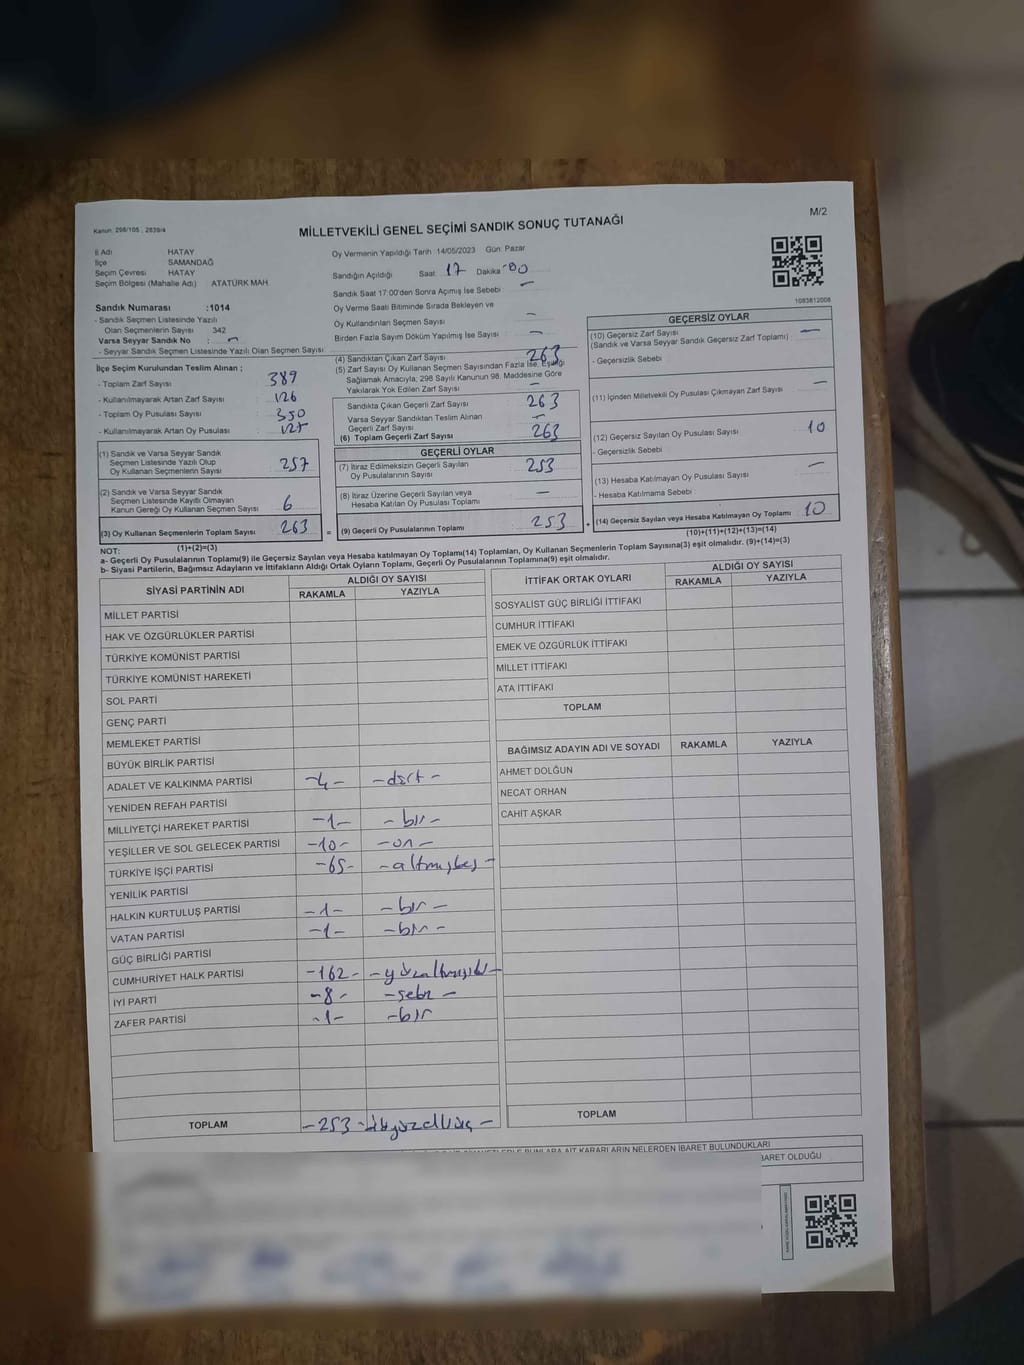 M/2
Kanun: 298/105 , 2839/4
MİLLETVEKİLİ GENEL SEÇİMİ SANDIK SONUÇ TUTANAĞI
İl Adı HATAY
İlçe SAMANDAĞ
Seçim Çevresi HATAY
Seçim Bölgesi (Mahalle Adı) ATATÜRK MAH.
Oy Vermenin Yapıldığı Tarih :14/05/2023 Gün: Pazar
Sandığın Açıldığı Saat: 17 Dakika: 00
Sandık Saat 17:00'den Sonra Açımış İse Sebebi : –
Oy Verme Saati Bitiminde Sırada Bekleyen ve
Oy Kullandırılan Seçmen Sayısı –
Birden Fazla Sayım Döküm Yapılmış İse Sayısı –
1083812008
Sandık Numarası :1014
- Sandık Seçmen Listesinde Yazılı
Olan Seçmenlerin Sayısı : 342
Varsa Seyyar Sandık No : –
- Seyyar Sandık Seçmen Listesinde Yazılı Olan Seçmen Sayısı
İlçe Seçim Kurulundan Teslim Alınan ;
- Toplam Zarf Sayısı : 389
- Kullanılmayarak Artan Zarf Sayısı : 126
- Toplam Oy Pusulası Sayısı : 350
- Kullanılmayarak Artan Oy Pusulası : 127
(1) Sandık ve Varsa Seyyar Sandık
Seçmen Listesinde Yazılı Olup
Oy Kullanan Seçmenlerin Sayısı : 257
(2) Sandık ve Varsa Seyyar Sandık
Seçmen Listesinde Kayıtlı Olmayan
Kanun Gereği Oy Kullanan Seçmen Sayısı : 6
(3) Oy Kullanan Seçmenlerin Toplam Sayısı : 263
(1)+(2)=(3)
(4) Sandıktan Çıkan Zarf Sayısı : 263
(5) Zarf Sayısı Oy Kullanan Seçmen Sayısından Fazla İse, Eşitliği
Sağlamak Amacıyla, 298 Sayılı Kanunun 98. Maddesine Göre
Yakılarak Yok Edilen Zarf Sayısı : –
Sandıkta Çıkan Geçerli Zarf Sayısı : 263
Varsa Seyyar Sandıktan Teslim Alınan
Geçerli Zarf Sayısı : –
(6) Toplam Geçerli Zarf Sayısı : 263
GEÇERLİ OYLAR
(7) İtiraz Edilmeksizin Geçerli Sayılan
Oy Pusulalarının Sayısı : 253
(8) İtiraz Üzerine Geçerli Sayılan veya
Hesaba Katılan Oy Pusulası Toplamı : –
= (9) Geçerli Oy Pusulalarının Toplamı : 253
GEÇERSİZ OYLAR
(10) Geçersiz Zarf Sayısı : –
(Sandık ve Varsa Seyyar Sandık Geçersiz Zarf Toplamı)
- Geçersizlik Sebebi
(11) İçinden Milletvekili Oy Pusulası Çıkmayan Zarf Sayısı : –
(12) Geçersiz Sayılan Oy Pusulası Sayısı : 10
- Geçersizlik Sebebi
(13) Hesaba Katılmayan Oy Pusulası Sayısı : –
- Hesaba Katılmama Sebebi
+ (14) Geçersiz Sayılan veya Hesaba Katılmayan Oy Toplamı : 10
(10)+(11)+(12)+(13)=(14)
NOT:
a- Geçerli Oy Pusulalarının Toplamı(9) ile Geçersiz Sayılan veya Hesaba katılmayan Oy Toplamı(14) Toplamları, Oy Kullanan Seçmenlerin Toplam Sayısına(3) eşit olmalıdır. (9)+(14)=(3)
b- Siyasi Partilerin, Bağımsız Adayların ve İttifakların Aldığı Ortak Oyların Toplamı, Geçerli Oy Pusulalarının Toplamına(9) eşit olmalıdır.
SİYASİ PARTİNİN ADI ALDIĞI OY SAYISI
RAKAMLA YAZIYLA
MİLLET PARTİSİ
HAK VE ÖZGÜRLÜKLER PARTİSİ
TÜRKİYE KOMÜNİST PARTİSİ
TÜRKİYE KOMÜNİST HAREKETİ
SOL PARTİ
GENÇ PARTİ
MEMLEKET PARTİSİ
BÜYÜK BİRLİK PARTİSİ
ADALET VE KALKINMA PARTİSİ -4- -dört-
YENİDEN REFAH PARTİSİ
MİLLİYETÇİ HAREKET PARTİSİ -1- -bir-
YEŞİLLER VE SOL GELECEK PARTİSİ -10- -on-
TÜRKİYE İŞÇİ PARTİSİ -65- -altmışbeş-
YENİLİK PARTİSİ
HALKIN KURTULUŞ PARTİSİ -1- -bir-
VATAN PARTİSİ -1- -bir-
GÜÇ BİRLİĞİ PARTİSİ
CUMHURİYET HALK PARTİSİ -162- -yüzaltmışiki-
İYİ PARTİ -8- -sekiz-
ZAFER PARTİSİ -1- -bir
TOPLAM -253- ikiyüzelliüç-
İTTİFAK ORTAK OYLARI ALDIĞI OY SAYISI
RAKAMLA YAZIYLA
SOSYALİST GÜÇ BİRLİĞİ İTTİFAKI
CUMHUR İTTİFAKI
EMEK VE ÖZGÜRLÜK İTTİFAKI
MİLLET İTTİFAKI
ATA İTTİFAKI
TOPLAM
BAĞIMSIZ ADAYIN ADI VE SOYADI RAKAMLA YAZIYLA
AHMET DOLĞUN
NECAT ORHAN
CAHİT AŞKAR
TOPLAM
BUNLARA AİT KARARLARIN NELERDEN İBARET BULUNDUKLARI
İBARET OLDUĞU